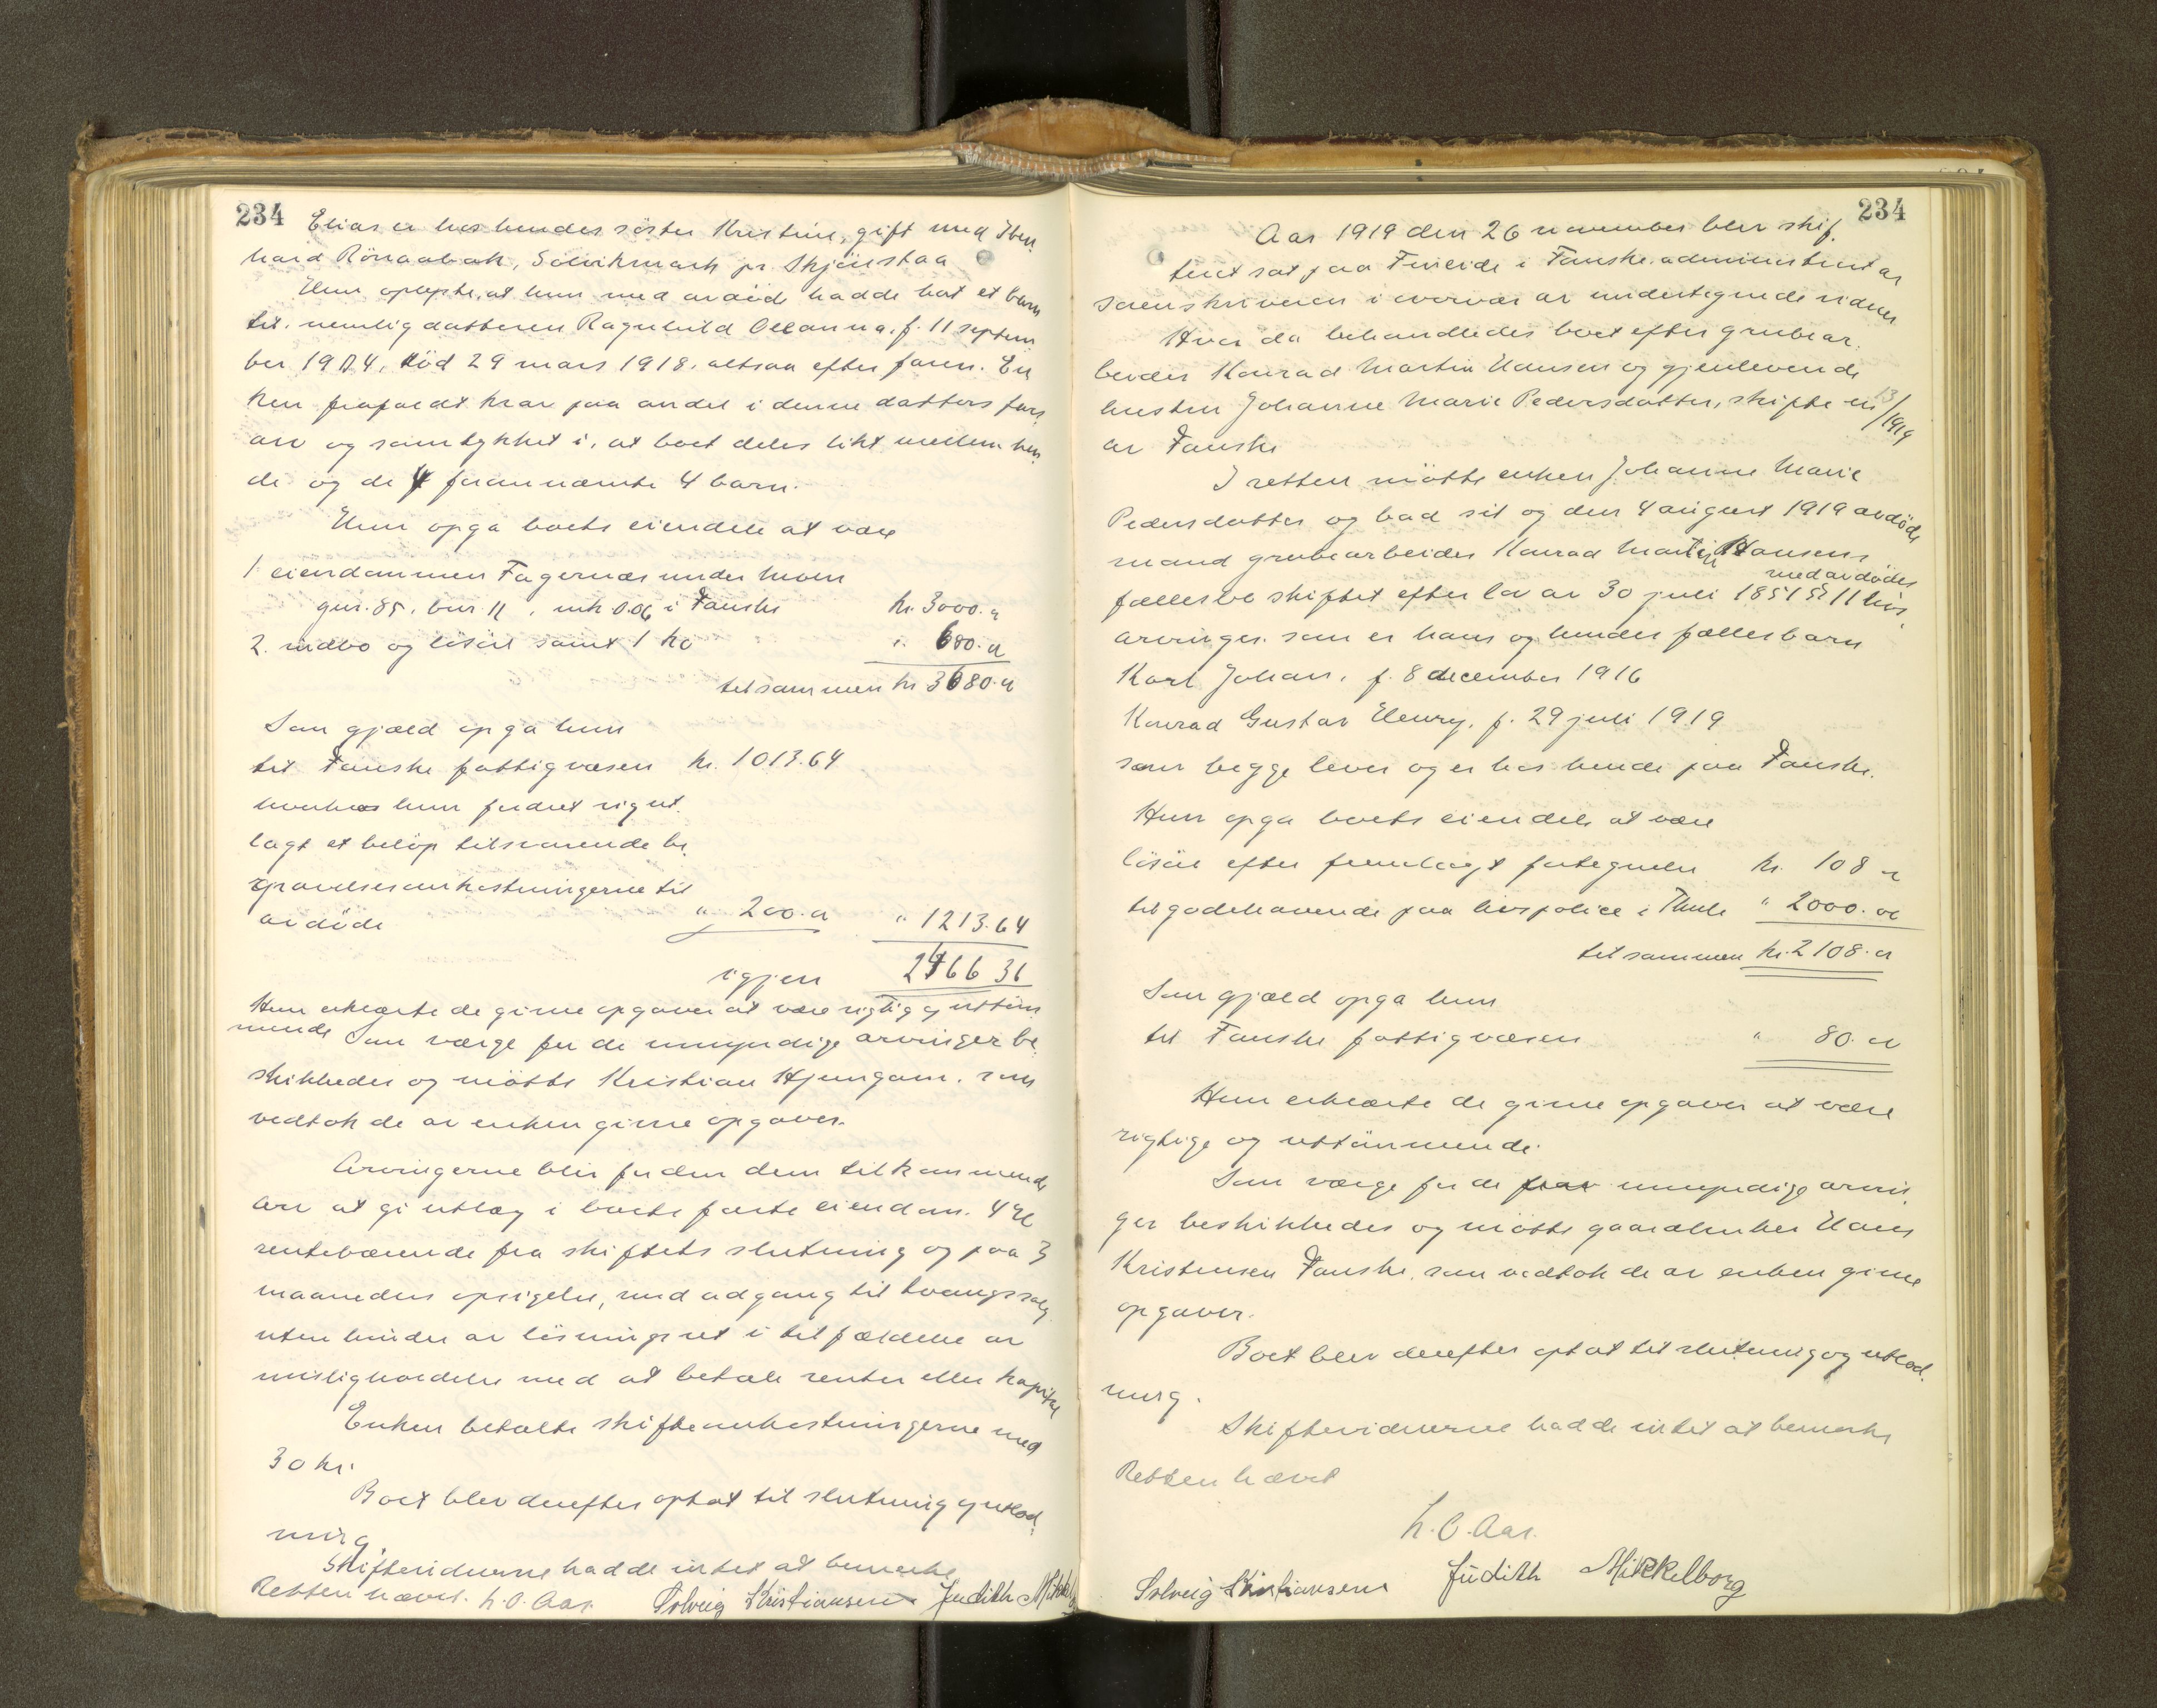 234
Elias er hos hendes söster Kristine, gift med
hard Rönaabak, Solvikmark pr. Skjönstaa
Hun oplyste, at hun med avdöde hadde hat et barn
til. nemlig datteren Ragnhild Oleanna, f. 11 septem
ber 1904, död 29 mars 1918. altsaa efter faren. En
ken frafaldt krav paa andel i denne datters fars
arv og samtykket i, at boet deles likt mellem hen
de og de 4 forannævnte 4 barn.
Hun opga boets eiendele at være
1 eiendommen Fagernes under Moen
gnr. 85, bnr 11, mk 0.06 i Fauske kr. 3000.-
2. indbo og lösöre samt 1 ko " 680.-
tilsammen kr 3680.-
Som gjæld opga hun
til Fauske fattigvæsen kr. 1013.64
hvorhos hun fordret sig ut
lagt et belöp tilsvarende be
gravelsesomkostningerne til
avdöde " 200.- " 1213.64
igjen 2466 36
Hun erklærte de givne opgaver at være rigtig og uttöm
mende Som værge for de umyndige arvinger be
skikkedes og mötte Kristian Hjemgam. som
vedtok de av enken givne opgaver.
Arvingerne blir for den dem tilkommende
arv at gi utlæg i boets faste eiendom. 4 %
rentebærende fra skiftets slutning og paa 3
maaneders opsigelse, med adgang til tvangssalg
uten hinder av lösningsret i tilfældelse av
misligholdelse med at betale renter eller kapital
Enken betalte skifteomkostningerne med
30 kr.
Boet blev derefter optat til slutning og utlod
ning
Skiftevidnerne hadde intet at bemerke
Retten hævet. h. O. Aas. Solveig Kristiansen Judith Mikkelb
234
Aar 1919 den 26 november blev skif
teret sat paa Finneide i Fauske. administrert av
sorenskriveren i overvær av undertegnede vidner
Hvor da behandledes boet efter grubear
beider Konrad Martin Hansen og gjenlevende
hustru Johanne Marie Pedersdatter, skifte nr 13/1919
av Fauske
I retten mötte enken Johanne Marie
Pedersdatter og bad sit og den 4 august 1919 avdöde
mand grubearbeider Konrad Martin Hansens
fællesbo skiftet efter lov av 30 juli 1851 § 11 med avdödes livs
arvinger. som er hans og hendes fællesbarn
Karl Johan, f. 8 december 1916
Konrad Gustav Henry. f. 29 juli 1919
som begge lever og er hos hende paa Fauske.
Hun opga boets eiendele at være
lösöre efter fremlagt fortegnelse kr. 108 -
tilgodehavende paa livspolice i Thule " 2000.-
tilsammen kr. 2108.-
Som gjæld opga hun
til Fauske fattigvæsen " 80.-
Hun erklærte de givne opgaver at være
rigtige og uttömmende.
Som værge for de umyndige arvin
ger beskikkedes og mötte gaardbruker Hans
Kristensen Fauske. som vedtok de av enken givne
opgaver.
Boet blev derefter optat til slutning og utlod
ning.
Skiftevidnerne hadde intet at bemerke
Retten hævet
h. O. Aas.
Solveig Kristiansen Judith Mikkelborg